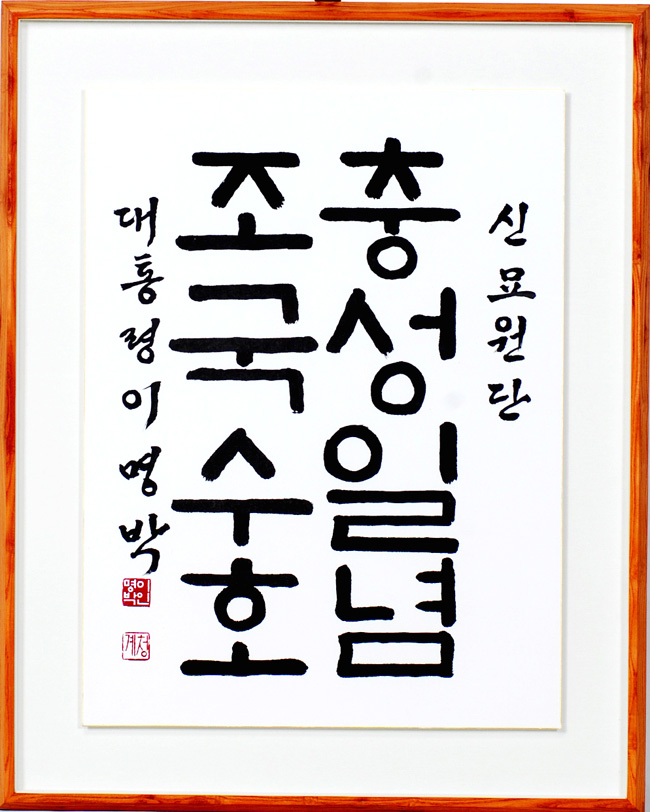 신묘원단
충성일념
조국수호
대통령이명박
이명박인
청계